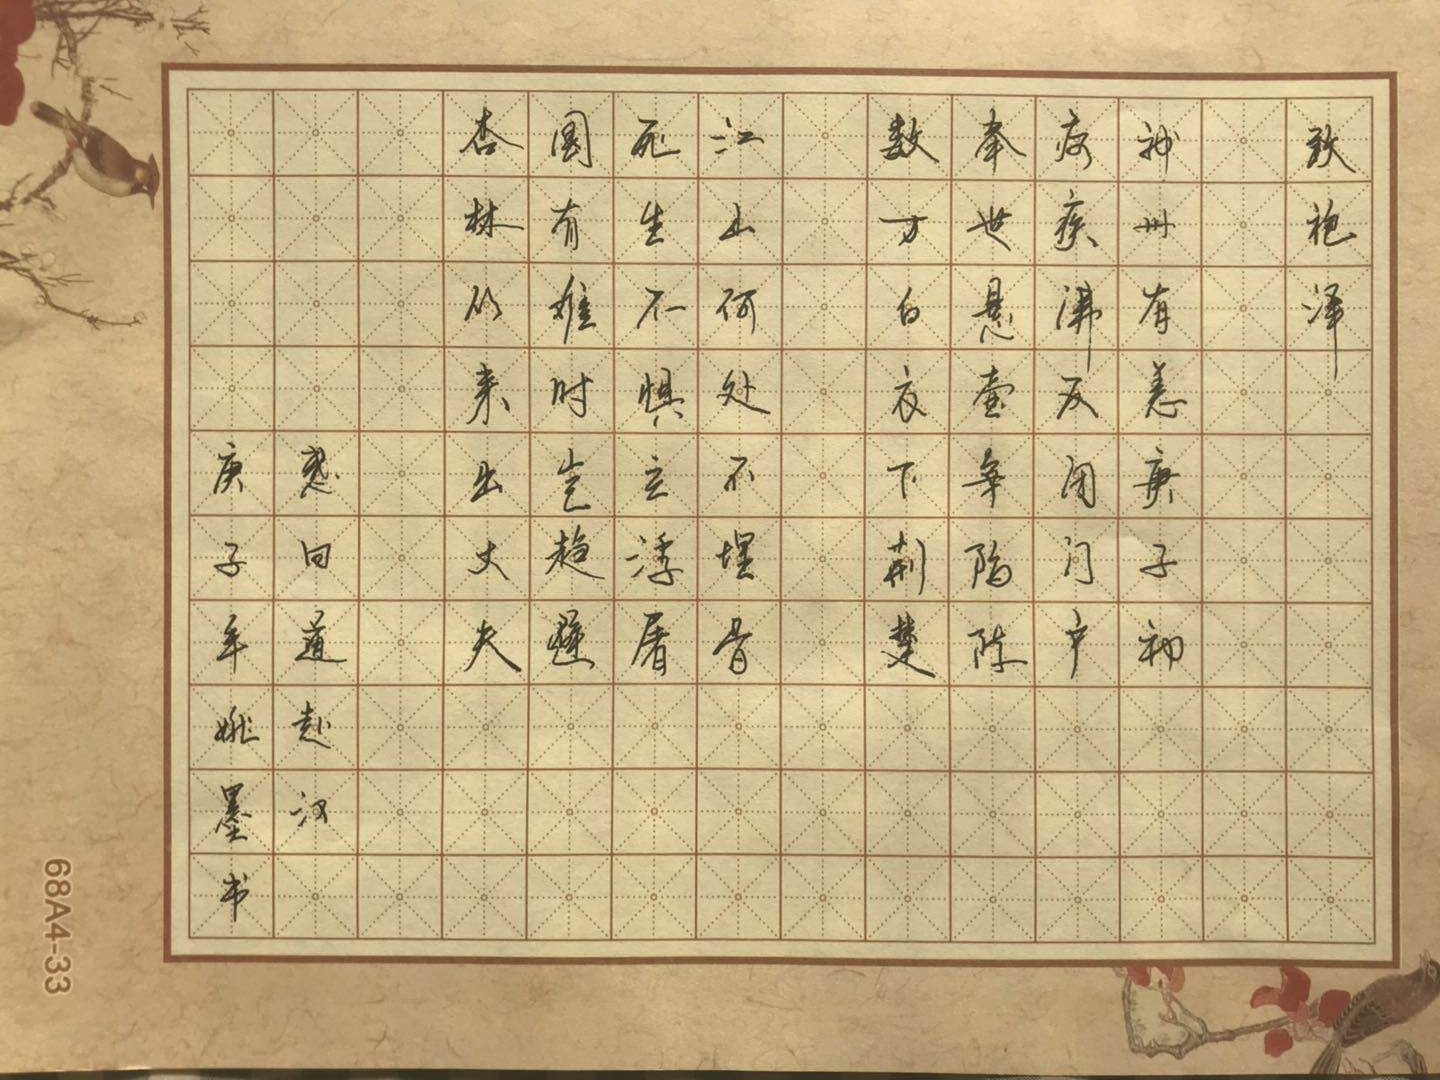 致袍泽
神州有恙庚子初
疫疾沸反闭门户
举世悬壶争陷阵
数万白衣下荆楚
江山何处不埋骨
死生不惧立浮屠
国有难时岂趋避
杏林从来出丈夫
感同道赴汉
庚子年姚墨书
68A4-33